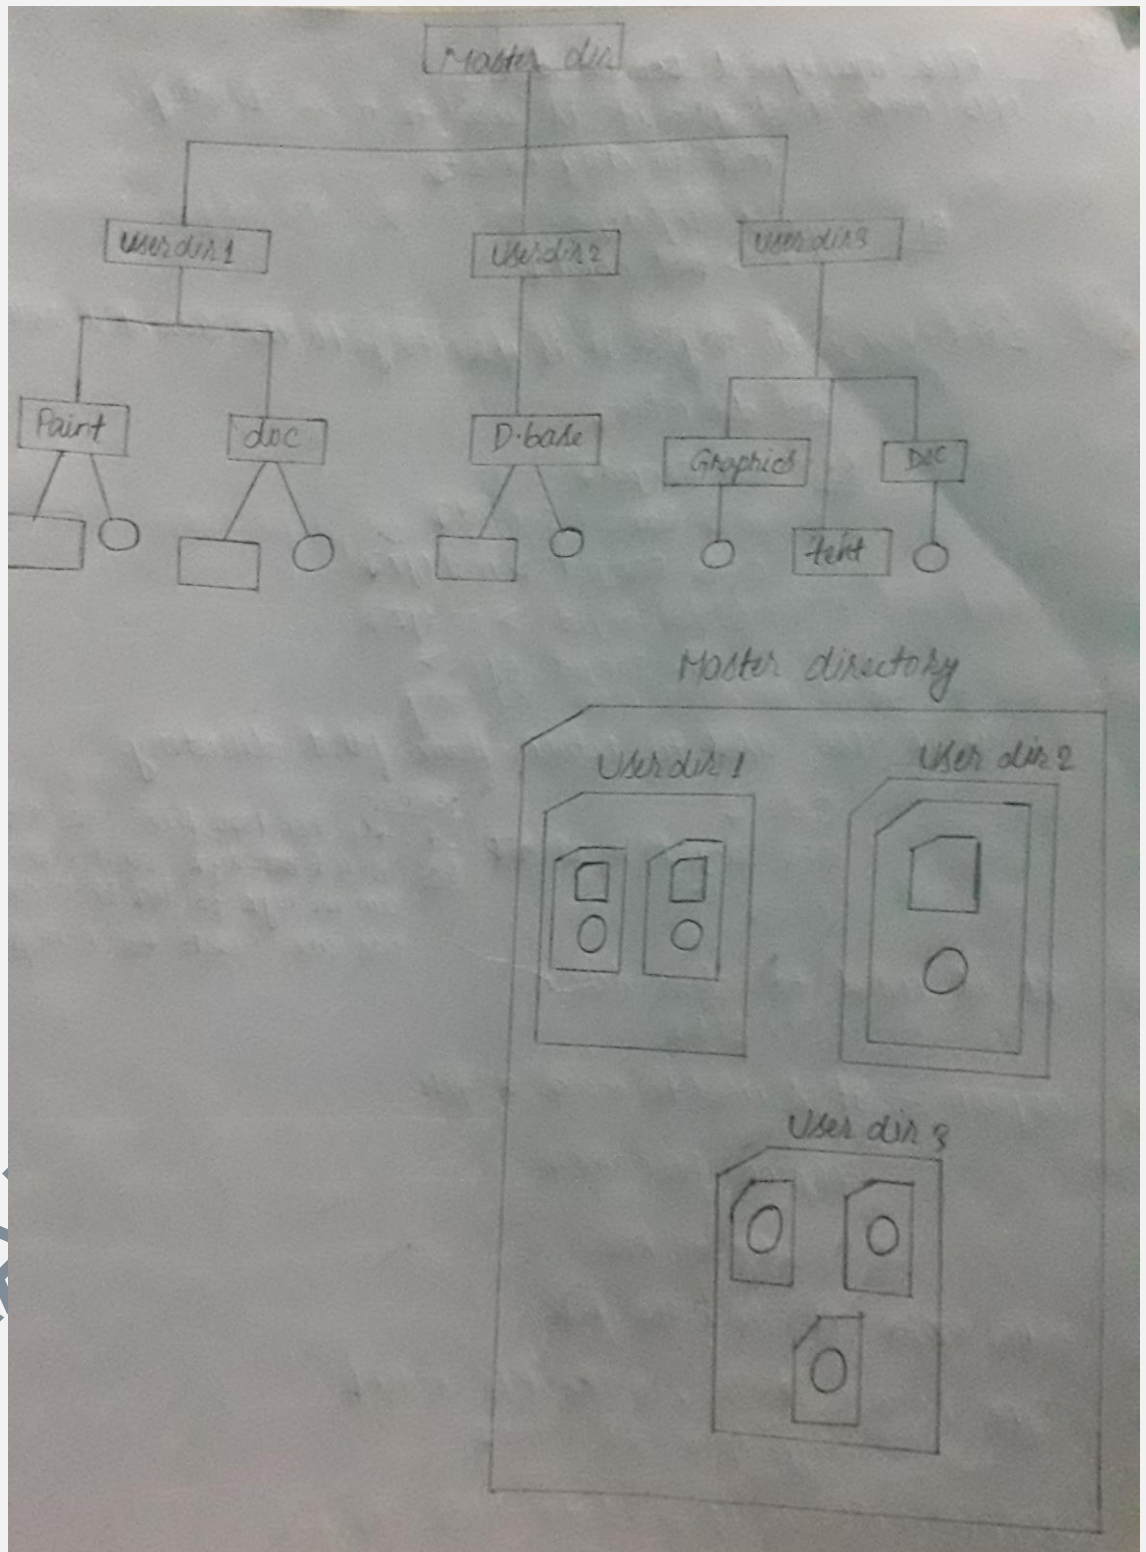 Master dir
Userdir1
Userdir2
Userdir3
Paint
doc
D.base
Graphics
Doc
text
Master directory
User dir 1
User dir 2
User dir 3